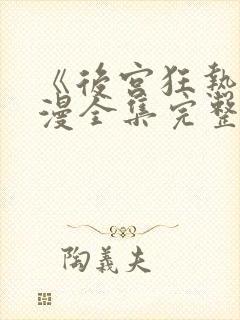 《後宮狂熱
漫全集完整
陶義夫